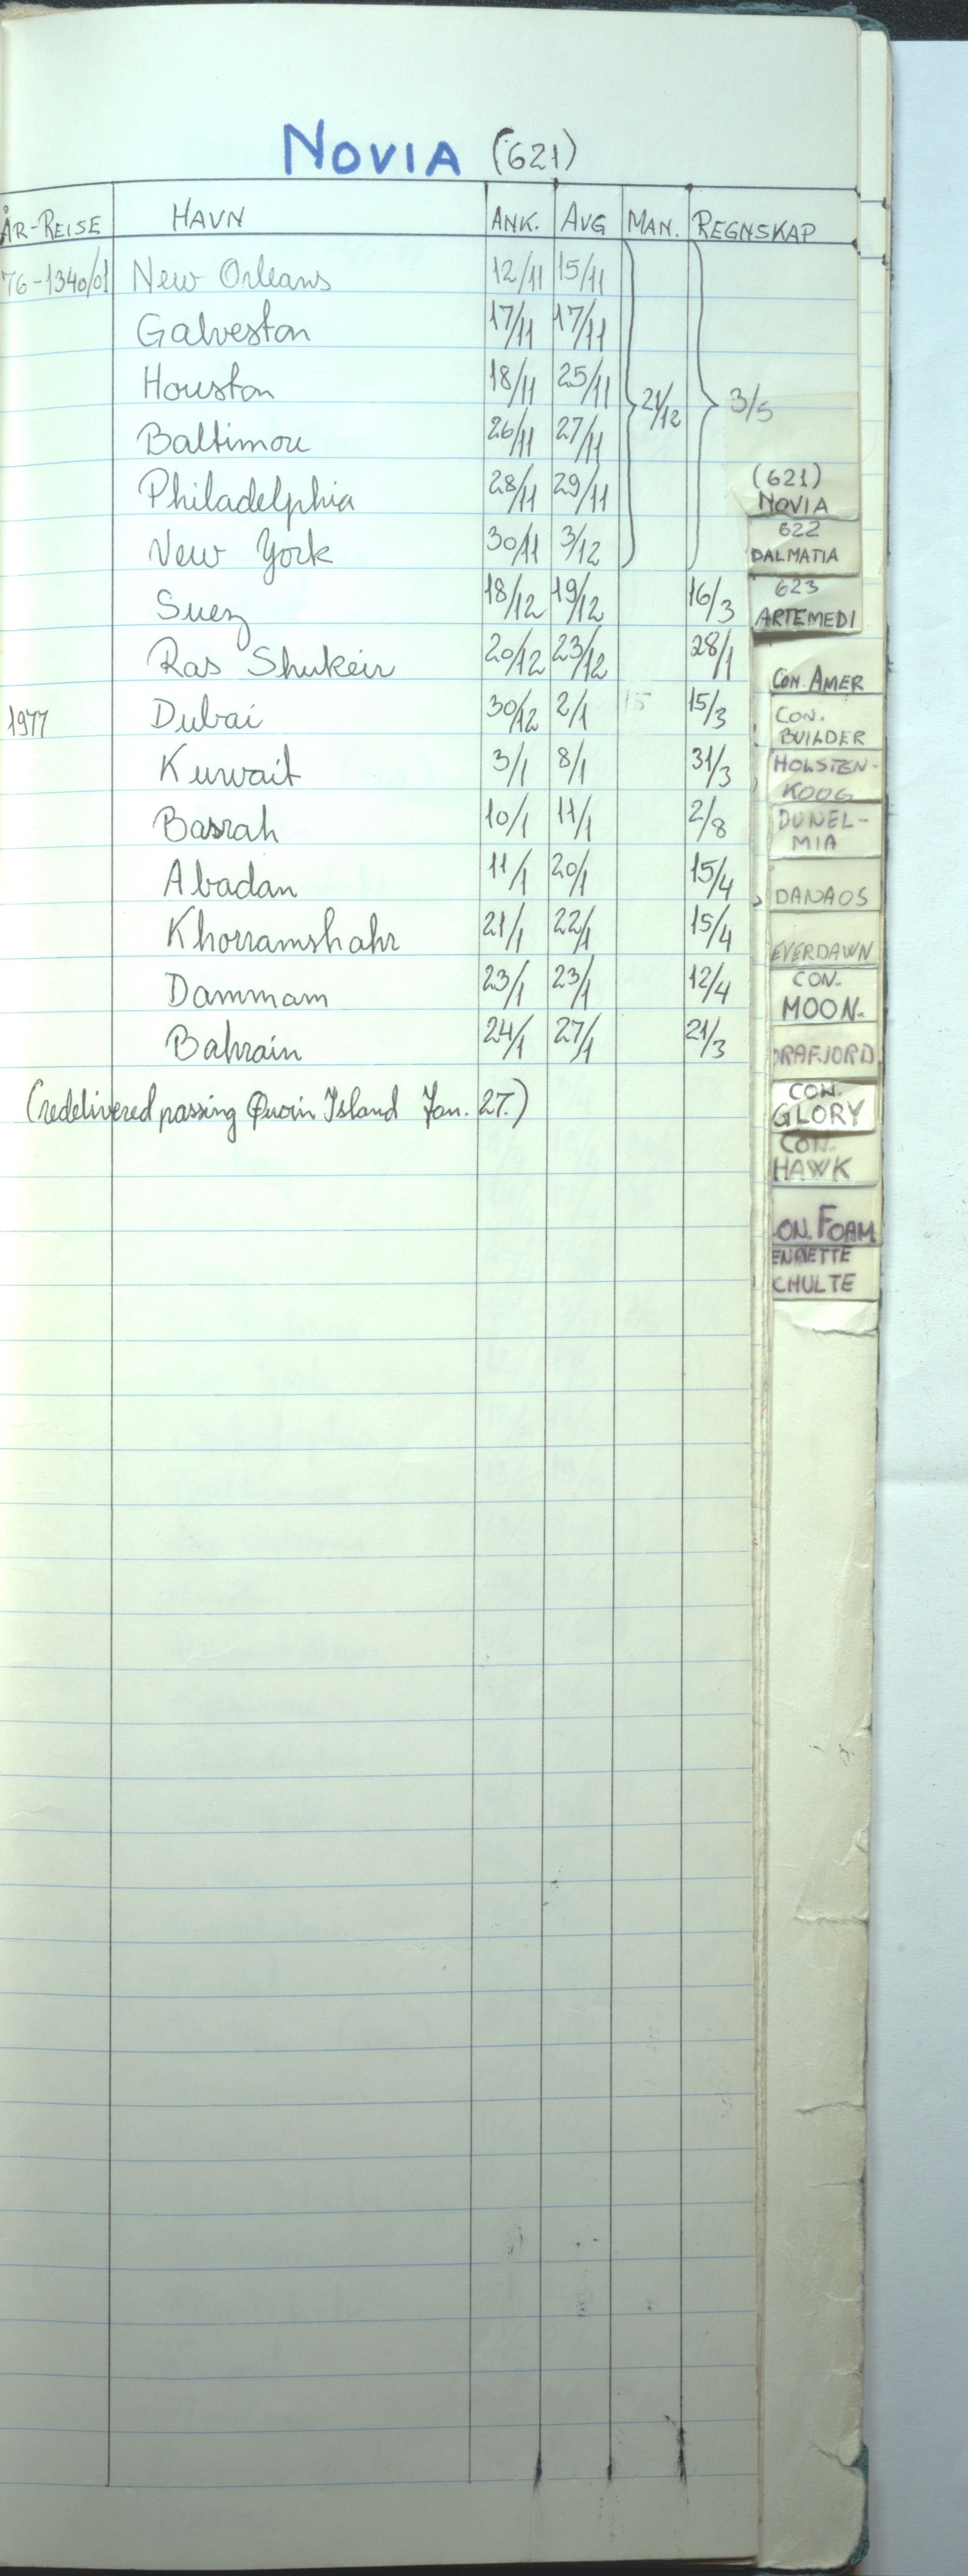 NOVIA (621)
ÅR-REISE HAVN ANK. AVG MAN. REGNSKAP
76-1340/01 New Orleans 12/11 15/11
Galveston 17/11 17/11
Houston 18/11 25/11 21/12 3/5
Baltimore 26/11 27/11
Philadelphia 28/11 29/11
New York 30/11 3/12
Suez 18/12 19/12 16/3
Ras Shukeir 20/12 23/12 28/1
1977 Dubai 30/12 2/1 15 15/3
Kuwait 3/1 8/1 31/3
Basrah 10/1 11/1 2/8
Abadan 11/1 20/1 15/4
Khorramshahr 21/1 22/1 15/4
Dammam 23/1 23/1 12/4
Bahrain 24/1 27/1 21/3
(redelivered passing Quoin Island Jan. 27.)
(621)
NOVIA
622
DALMATIA
623
ARTEMEDI
CON. AMER
CON.
BUILDER
HOLSTEN-
KOOG
DUNEL-
MIA
DANAOS
EVERDAWN
CON.
MOON.
DRAFJORD
CON.
GLORY
CON.
HAWK
ON. FOAM
ENRIETTE
CHULTE